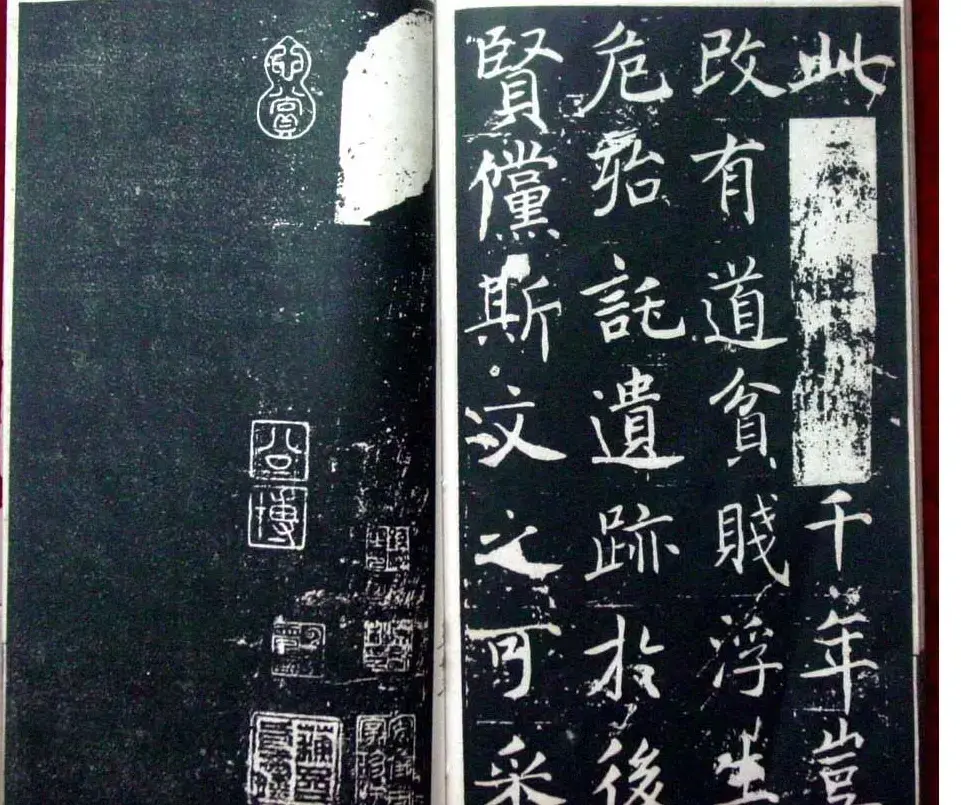 此千年豈
改有道貧賤浮生
危殆託遺跡於後
賢儻斯文之可采
公
博